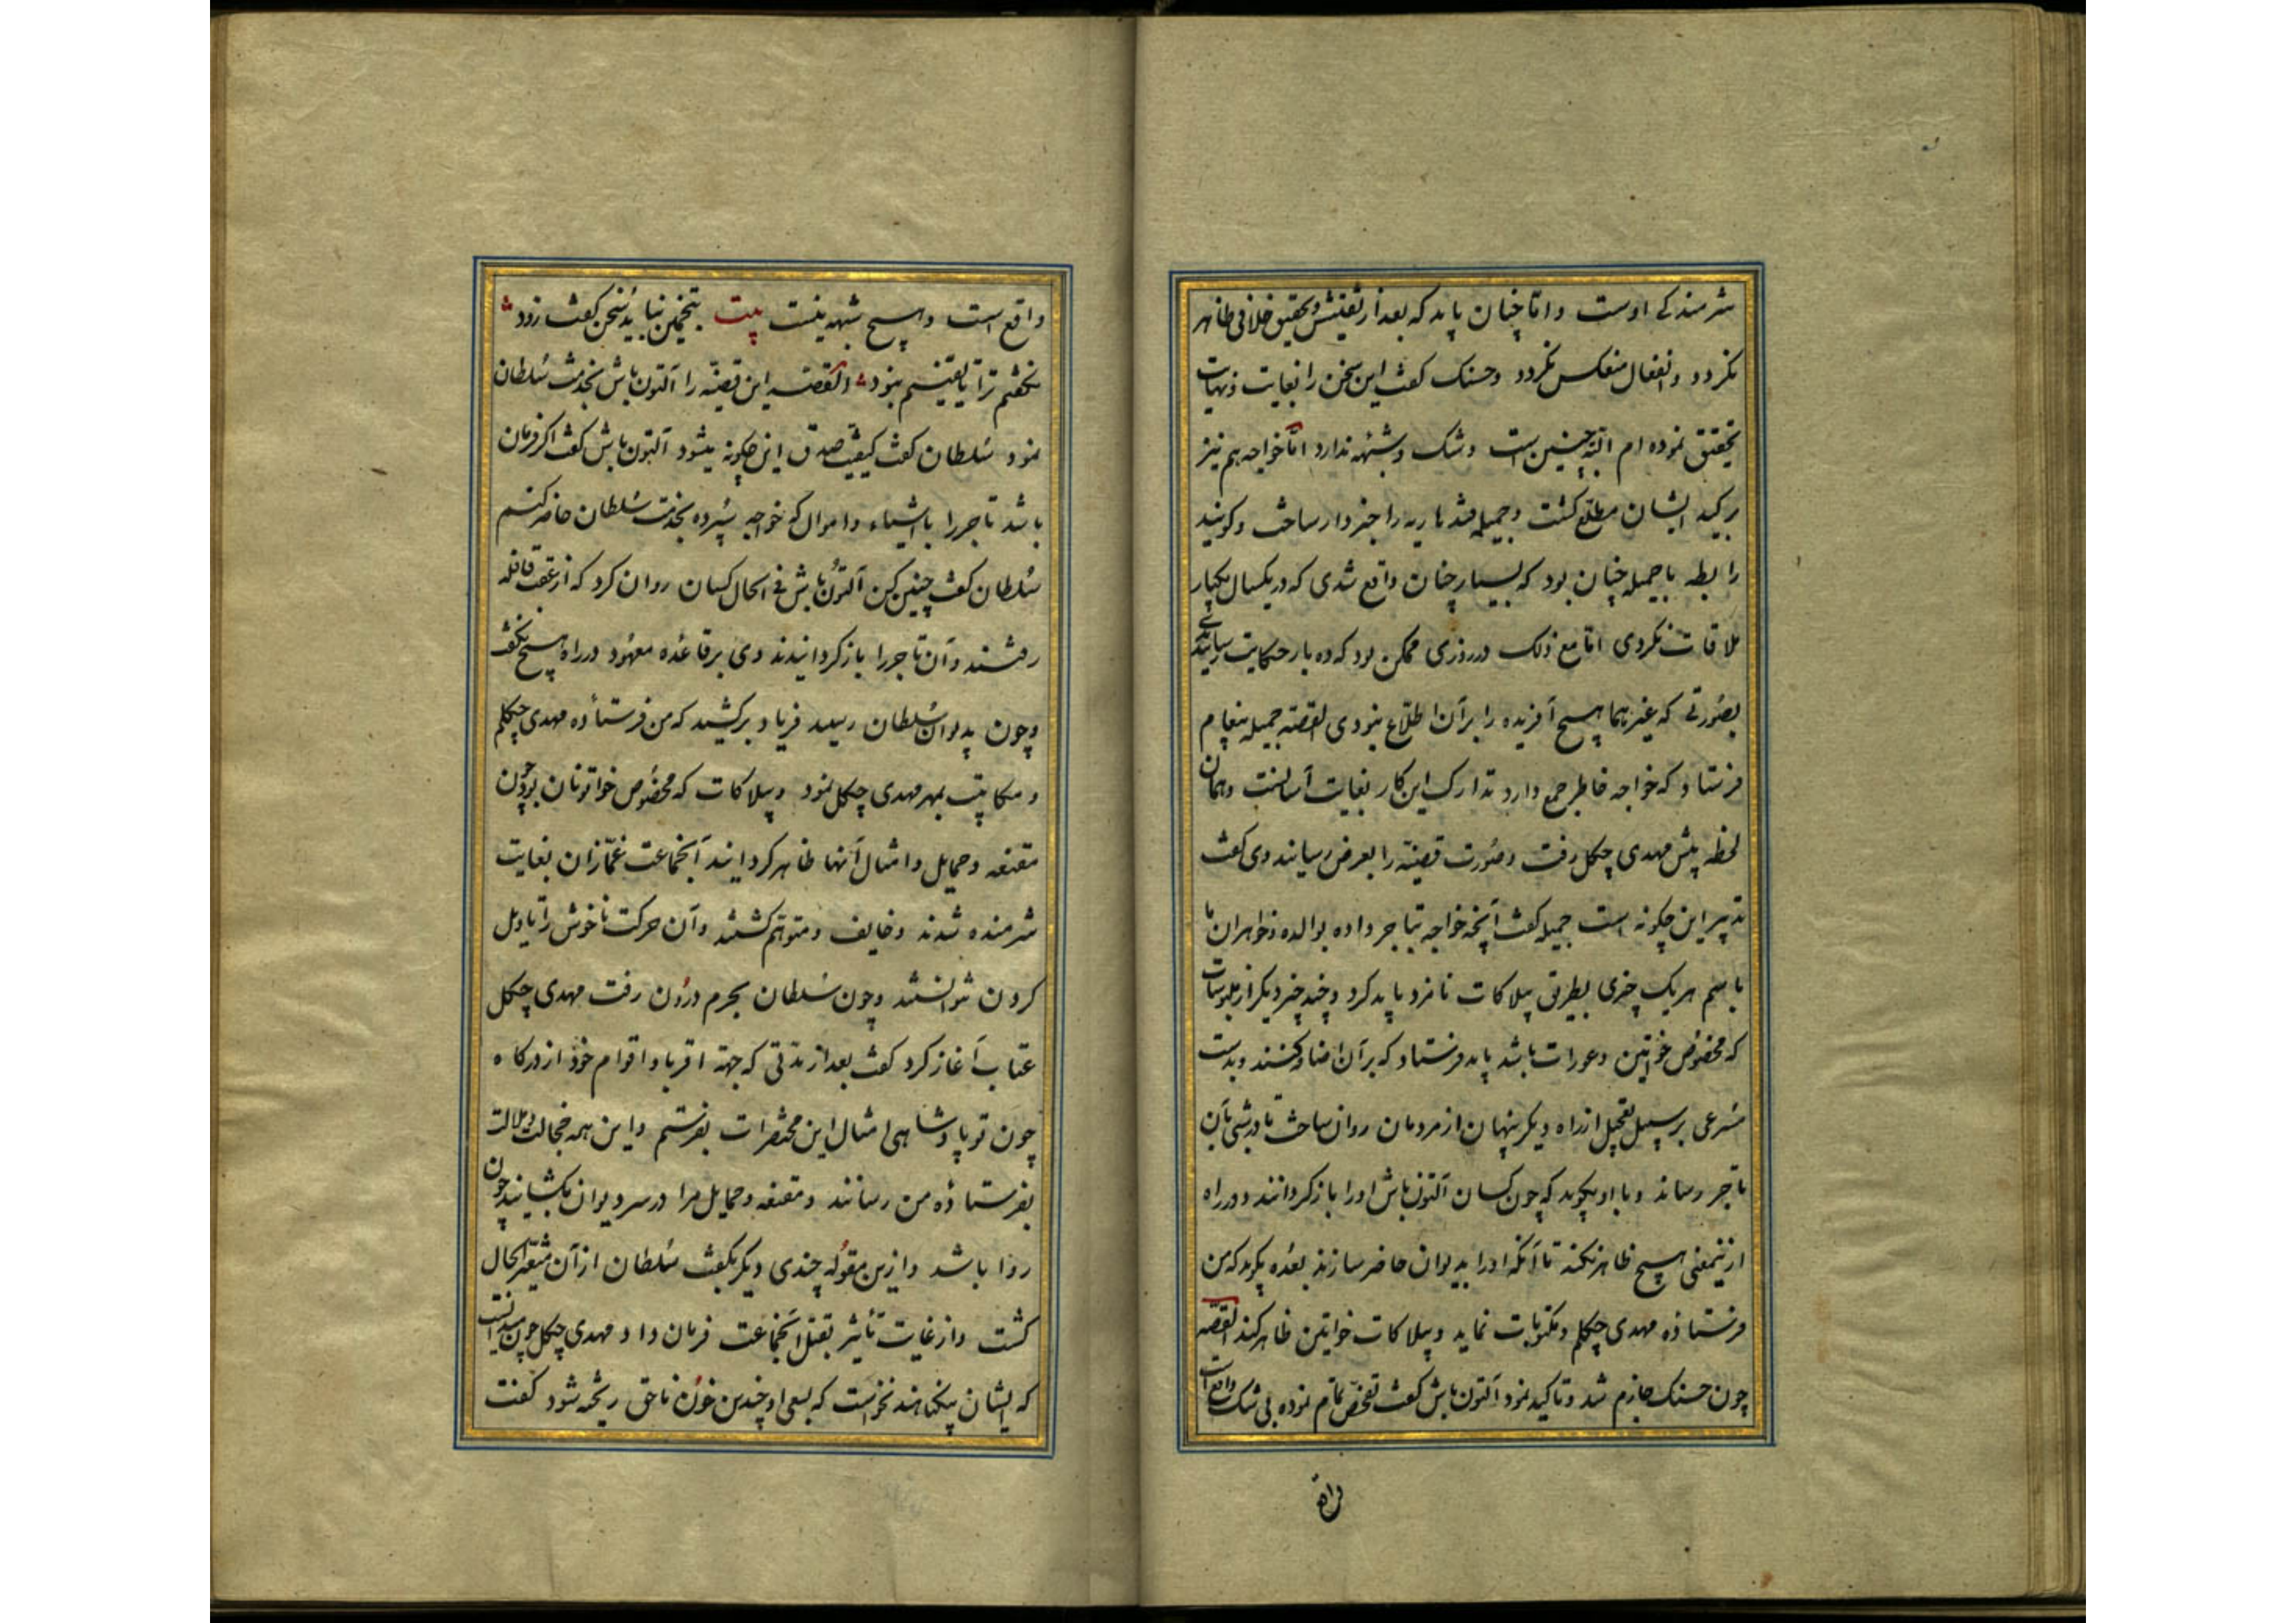 شرمندکی اوست و اما چنان باید که بعد از تفتیش و تحقیق خلافی ظاهر
نکردد و انفعال منعکس نکردد و حسنک کفت این سخن را بغایت و نهایت
تحقیق نموده ام البته چنین است و شک و شبهه ندارد اما خواجه هم نیز
بر کید ایشان مطلع کشت و جمیله قندهاریه را خبردار ساخت و کویند
رابطه با جمیله چنان بود که بسیار چنان واقع شدی که در یکسال یکبار
ملاقات نکردی اما مع ذلک در روزی ممکن بود که ده بار حکایت رسانیدندی
بصورتی که غیرهما هیچ آفریده را بر آن اطلاع نبودی القصه جمیله پیغام
فرستاد که خواجه خاطر جمع دارد تدارک این کار بغایت آسانست و همان
لحظه پیش مهدی چکل رفت و صورت قضیه را بعرض رسانید وی کفت
تدبیر این چکونه است جمیله کفت آنچه خواجه بتاجر داده بوالده و خواهران ما
باسم هر یک چیزی بطریق بیلاکات نامزد باید کرد و چند چیز دیکر از ملبوسات
که مخصوص خواتین و عورات باشد باید فرستاد که بر آن اضافه کنند و بدست
مسرعی بر سبیل تعجیل از راه دیکر پنهان از مردمان روان ساخت تا در شب بآن
تاجر رساند و با او بکوید که چون کسان آلتون باش او را باز کردانند و در راه
ازینمعنی هیچ ظاهر نکند تا آنکه او را بدیوان حاضر سازند بعده بکوید که من
فرستاده مهدی چکلم و مکتوبات نماید و بیلاکات خواتین ظاهر کند القصه
چون حسنک جازم شد و تاکید نمود آلتون باش کفت تفحص تمام نموده بی شک واقع است
واقع است و هیچ شبهه نیست بیت بتخمین نباید سخن کفت زود
نکفتم ترا تا یقینم نبود القصه این قضیه را آلتون باش بخدمت سلطان
نمود سلطان کفت کیفیت صدق این چکونه میشود آلتون باش کفت اکر فرمان
باشد تاجر را با اشیاء و اموال که خواجه سپرده بخدمت سلطان حاضر کنیم
سلطان کفت چنین کن آلتون باش فی الحال کسان روان کرد که از عقب قافله
رفتند و آن تاجر را باز کردانیدند وی بر قاعده معهود در راه هیچ نکفت
و چون بدیوان سلطان رسید فریاد برکشید که من فرستاده مهدی چکلم
و مکاتیب بمهر مهدی چکل نمود و بیلاکات که مخصوص خواتونان بود چون
مقنعه و حمایل و امثال آنها ظاهر کردانید آنجماعت غمازان بغایت
شرمنده شدند و خایف و متوهم کشتند و آن حرکت ناخوش را تاویل
کردن نتوانستند و چون سلطان بحرم درون رفت مهدی چکل
عتاب آغاز کرد کفت بعد از مدتی که جهة اقربا و اقوام خود از درکاه
چون تو پادشاهی امثال این محتصرات بفرستم و این همه خجالت و ملالت
بفرستاده من رسانند و مقنعه و حمایل مرا در سر دیوان بکشایند چون
روا باشد و ازین مقوله چندی دیکر بکفت سلطان از آن متغیر الحال
کشت و از غایت تأثیر بقتل آنجماعت فرمان داد و مهدی چکل چون میدانست
که ایشان بیکناهند نخواست که بسعی او چندین خون ناحق ریخته شود کفت